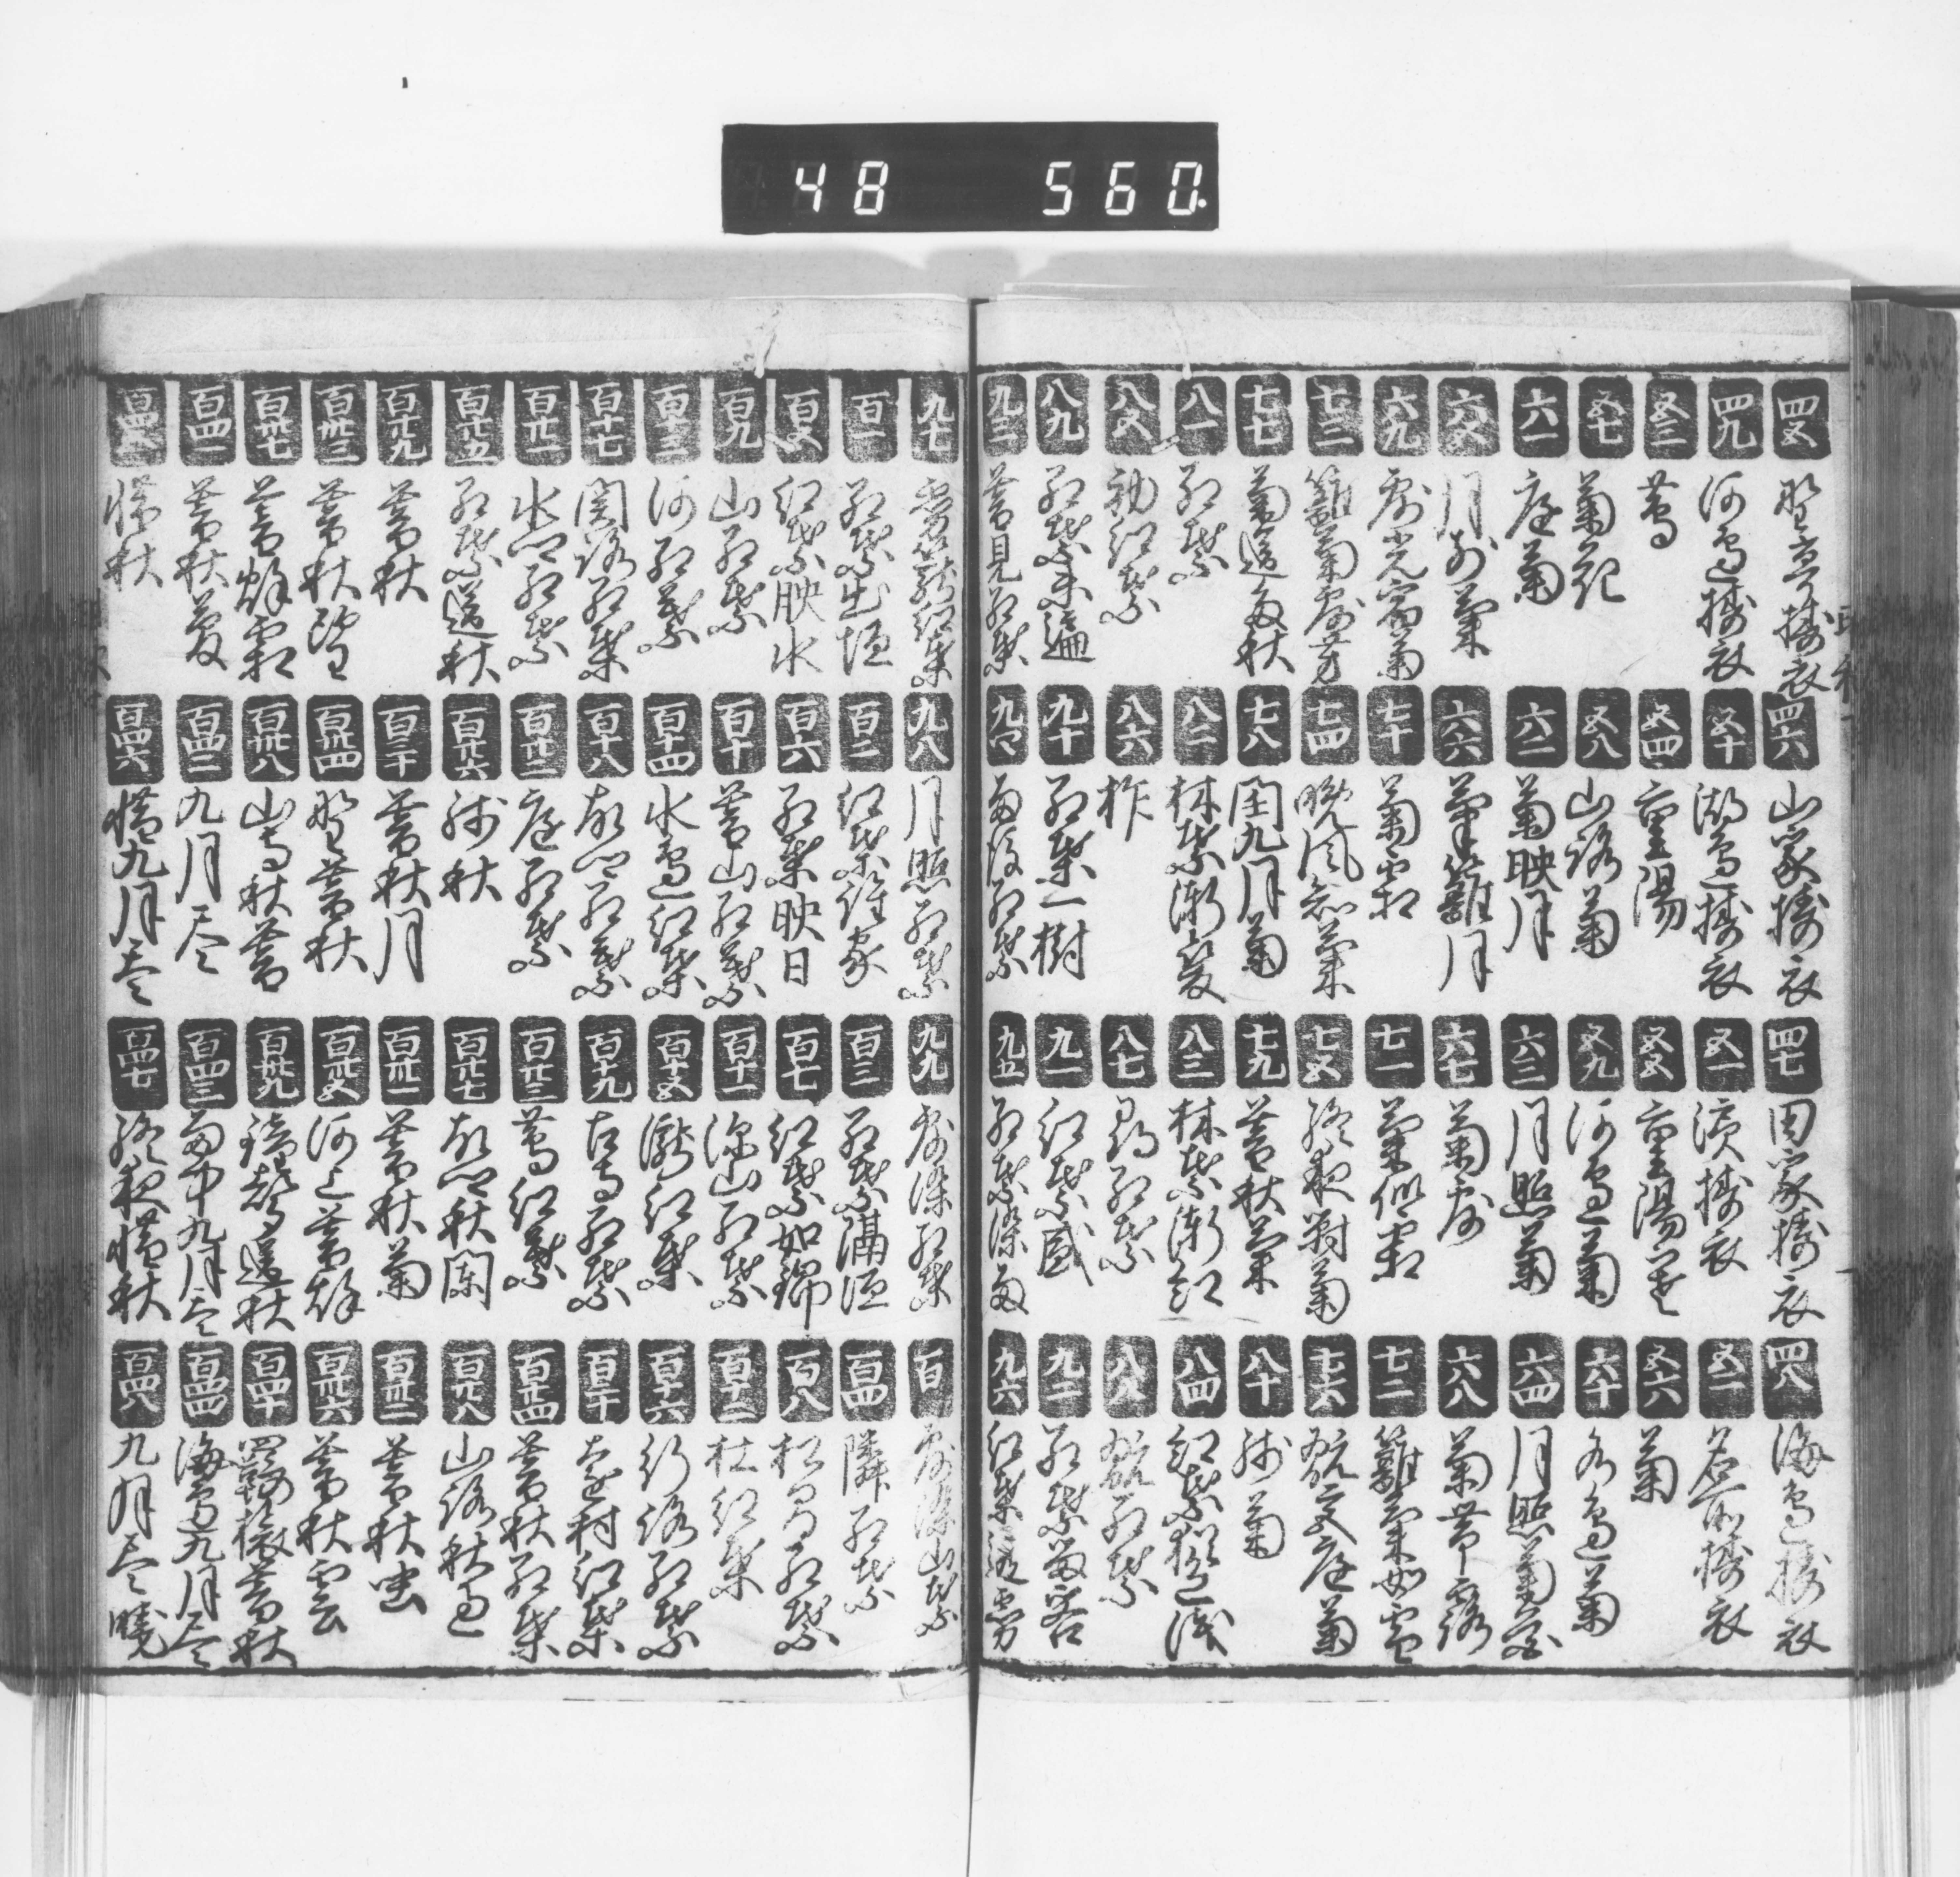 48 560.
四五 野亭擣衣
四六 山家擣衣
四七 田家擣衣
四八 海邊擣衣
四九 河邊擣衣
五十 湖邊擣衣
五一 濱擣衣
五二 名所擣衣
五三 蔦
五四 重陽
五五 重陽宴
五六 菊
五七 菊花
五八 山路菊
五九 河邊菊
六十 水邊菊
六一 庭菊
六二 菊映月
六三 月照菊
六四 月照菊花
六五 月前菊
六六 菊籬月
六七 菊露
六八 菊帯露
六九 露光宿菊
七十 菊霜
七一 菊似霜
七二 籬菊如雪
七三 籬菊露芳
七四 晩風知菊
七五 終夜對菊
七六 翫夜庭菊
七七 菊送多秋
七八 閏九月菊
七九 暮秋菊
八十 残菊
八一 紅葉
八二 林葉漸変
八三 林葉漸紅
八四 紅葉猶浅
八五 初紅葉
八六 柞
八七 尋紅葉
八八 翫紅葉
八九 紅葉未遍
九十 紅葉一樹
九一 紅葉盛
九二 紅葉留客
九三 暮見紅葉
九四 雨後紅葉
九五 紅葉染雨
九六 紅葉透霧
九七 霧籠紅葉
九八 月照紅葉
九九 露染紅葉
百 露染山葉
百一 紅葉出垣
百二 紅葉誰家
百三 紅葉隔垣
百四 隣紅葉
百五 紅葉映水
百六 紅葉映日
百七 紅葉如錦
百八 松間紅葉
百九 山紅葉
百十 暮山紅葉
百十一 深山紅葉
百十二 杜紅葉
百十三 河紅葉
百十四 水邊紅葉
百十五 瀧紅葉
百十六 行路紅葉
百十七 関路紅葉
百十八 故郷紅葉
百十九 古寺紅葉
百廿 遠村紅葉
百廿一 水郷紅葉
百廿二 庭紅葉
百廿三 蔦紅葉
百廿四 暮秋紅葉
百廿五 紅葉送秋
百廿六 残秋
百廿七 故郷秋闌
百廿八 山路秋過
百廿九 暮秋
百三十 暮秋月
百卅一 暮秋菊
百卅二 暮秋虫
百卅三 暮秋望
百卅四 野暮秋
百卅五 河上暮秋
百卅六 暮秋雲
百卅七 暮秋霜
百卅八 山寺秋暮
百卅九 鐘聲送秋
百四十 羇旅暮秋
百四一 暮秋変
百四二 九月尽
百四三 雨中九月尽
百四四 海邊九月尽
百四五 惜秋
百四六 惜九月尽
百四七 終夜惜秋
百四八 九月尽暁